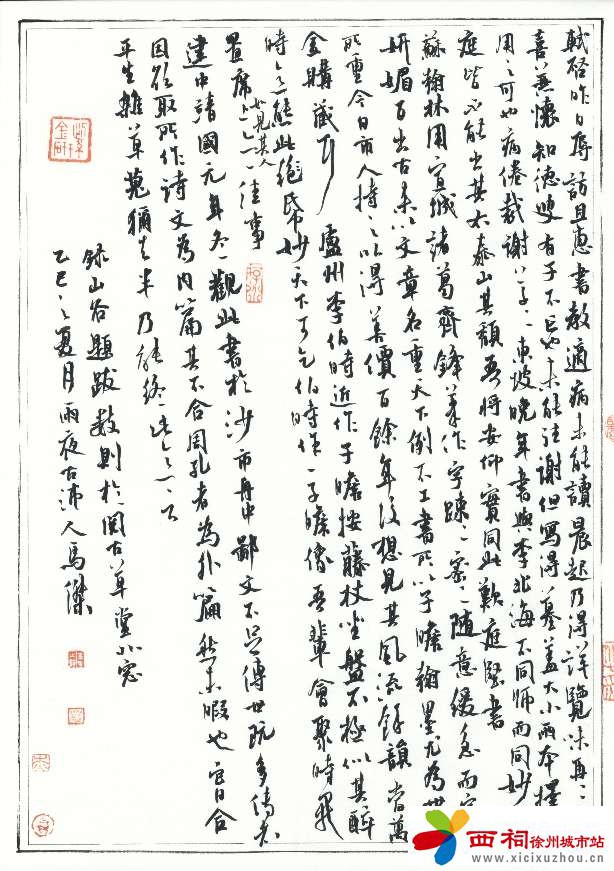 軾啓昨日辱訪且惠書教適病未能讀晨起乃得詳覽味再三
喜益無懷知德叟有子不亡也未能往謝但寫得墓蓋大小兩本擇
用之可也病倦裁謝草草東坡晚年書與李北海不同師而同妙
庭皆不能出其右泰山其頹吾將安仰實同此歎庭堅書
蘇翰林用宣城諸葛齊鋒筆作字疎疎密密隨意緩急而字
妍媚百出古來以文章名重天下例不工書所以子瞻翰墨尤為世
所重今日市人持之以得善價百餘年後想見其風流餘韻當萬
金購藏耳 廬州李伯時近作子瞻按藤杖坐盤石極似其醉
時意態此紙妙天下可乞伯時作一子瞻像吾輩會聚時
置席上如見其人一佳事
建中靖國元年冬觀此書於沙市舟中鄙文不足傳世既多傳者
因欲取所作詩文為內篇其不合周孔者為外篇然未暇也它日合
平生雜草蒐獼去半乃能終此意云
錄山谷題跋數則於閱古草堂北窗
乙巳之夏月雨夜古沛人馬傑
西祠徐州城市站
www.xicixuzhou.cn